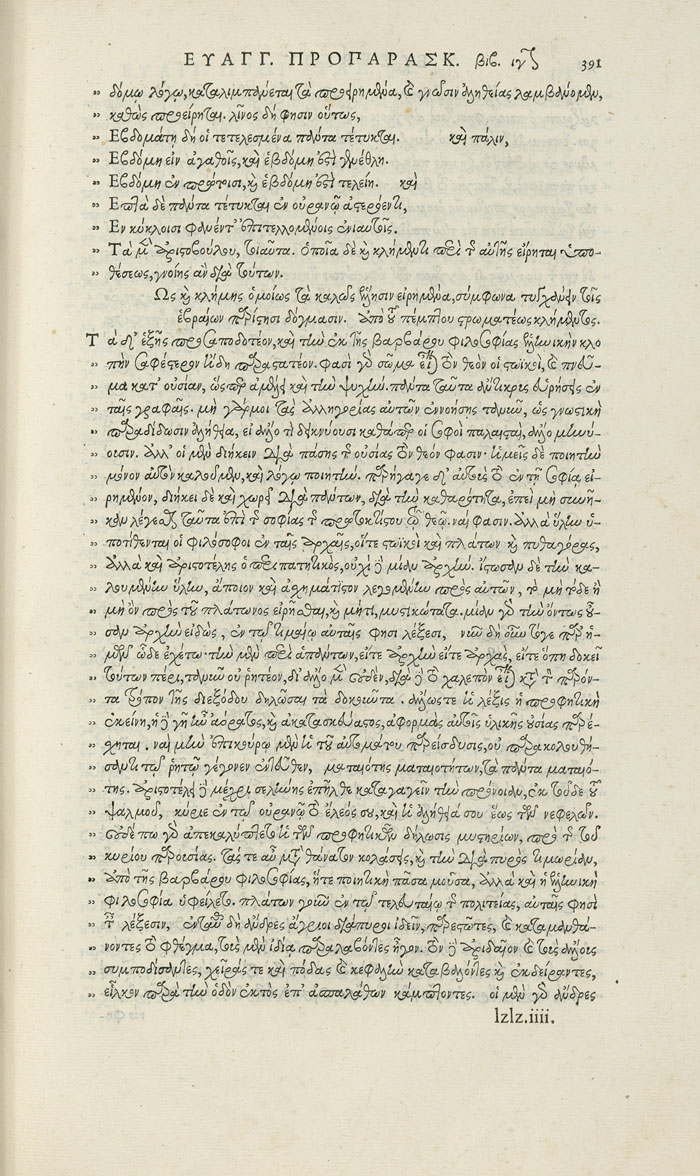 ΕΥΑΓΓ. ΠΡΟΠΑΡΑΣΚ. βιβ. ιγ 391
δόμῳ λόγῳ, καταλιμπάνεται τὰ προειρημένα, καὶ γνῶσιν ἀληθείας λαμβάνομεν,
καθὼς προείρηται. λίνος δή φησιν οὕτως,
Εβδομάτῃ δὴ οἱ τετελεσμένα πάντα τέτυκται. καὶ πάλιν,
Εβδόμη εἰν ἀγαθοῖς, καὶ ἑβδόμη ἐστὶ γενέθλη.
Εβδόμη ἐν πρώτοισι, καὶ ἑβδόμη ἐστὶ τελείη. καὶ
Επτὰ δὲ πάντα τέτυκται ἐν οὐρανῷ ἀστερόεντι,
Εν κύκλοισι φανέντ' ἐπιτελλομένοις ἐνιαυτοῖς.
Τὰ μὲν Ἀριστοβούλου, τοιαῦτα. ὁποῖα δὲ καὶ κλήμεντι περὶ τῆς αὐτῆς εἴρηται ὑπο-
θέσεως, γνοίης ἂν διὰ τούτων.
Ως καὶ κλήμης ὁμοίως τὰ καλῶς ἕλλησιν εἰρημένα, σύμφωνα τυγχάνειν τοῖς
ἑβραίων παρίστησι δόγμασιν. Ἀπὸ τοῦ πέμπτου στρωματέως κλήμεντος.
Τὰ δ' ἑξῆς προσαποδοτέον, καὶ τὴν ἐκ τῆς βαρβάρου φιλοσοφίας ἑλληνικὴν κλο
πὴν σαφέστερον ἤδη παραστατέον. Φασὶ γὰρ σῶμα εἶναι τὸν θεὸν οἱ στωϊκοὶ, καὶ πνεῦ-
μα κατ' οὐσίαν, ὥσπερ ἀμέλει καὶ τὴν ψυχήν. πάντα ταῦτα ἄντικρις εὑρήσεις ἐν
ταῖς γραφαῖς. μὴ γάρ μοι τὰς ἀλληγορίας αὐτῶν ἐννοήσης τανῦν, ὡς γνωστικὴ
παραδίδωσιν ἀλήθεια, εἰ ἄλλο τι δεικνύουσι καθάπερ οἱ σοφοὶ παλαισταὶ, ἄλλο μηνύ-
ουσιν. Ἀλλ' οἱ μὲν διήκειν διὰ πάσης τῆς οὐσίας τὸν θεόν φασιν· ἡμεῖς δὲ ποιητὴν
μόνον αὐτὸν καλοῦμεν, καὶ λόγῳ ποιητήν. παρήγαγε δ' αὐτοὺς τὸ ἐν τῇ σοφίᾳ εἰ-
ρημένον, διήκει δὲ καὶ χωρεῖ διὰ πάντων, διὰ τὴν καθαρότητα, ἐπεὶ μὴ συνῆ-
καν λέγεσθαι ταῦτα ἐπὶ τῆς σοφίας τῆς πρωτοκτίστου τῷ θεῷ. ναί φασιν. Ἀλλὰ ὕλην ὑ-
ποτίθενται οἱ φιλόσοφοι ἐν ταῖς ἀρχαῖς, οἵτε στωϊκοὶ καὶ πλάτων καὶ πυθαγόρας,
Ἀλλὰ καὶ Ἀριστοτέλης ὁ περιπατητικὸς, οὐχὶ δὲ μίαν ἀρχήν. ἴστωσαν δὲ τὴν κα-
λουμένην ὕλην, ἄποιον καὶ ἀσχημάτιστον λεγομένην πρὸς αὐτῶν,
μὴ ὂν πρὸς τοῦ πλάτωνος εἰρῆσθαι, καὶ μήτι, μυστικώτατα. μίαν γὰρ τὴν ὄντως οὖ-
σαν ἀρχὴν εἰδὼς, ἐν τῷ τιμαίῳ αὐταῖς φησι λέξεσι, νῦν δὴ οὖν τόγε παρ' ἡ-
μῶν ὧδε ἐχέτω· τὴν μὲν περὶ ἁπάντων, εἴτε ἀρχὴν εἴτε ἀρχὰς, εἴτε ὅπη δοκεῖ
τούτων πέρι, τανῦν οὐ ῥητέον, δι' ἄλλο μὲν οὐδὲν, διὰ δὲ τὸ χαλεπὸν εἶναι κατὰ τὸν παρόν-
τα τρόπον τῆς διεξόδου δηλῶσαι τὰ δοκοῦντα. ἄλλωστε ἡ λέξις ἡ προφητικὴ
ἐκείνη, ἡ δὲ γῆ ἦν ἀόρατος, καὶ ἀκατασκεύαστος, ἀφορμὰς αὐτοῖς ὑλικῆς οὐσίας παρέ-
χηται. ναὶ μὴν ἐπικούρῳ μὲν ἡ τοῦ αὐτομάτου παρείσδυσις, οὐ παρακολουθή-
σαντι τῷ ῥητῷ γέγονεν ἐντεῦθεν, ματαιότης ματαιοτήτων, τὰ πάντα ματαιό-
της. Ἀριστοτέλει δὲ μέχρι σελήνης ἐπῆλθε καταγαγεῖν τὴν πρόνοιαν, ἐκ τοῦδε τοῦ
ψαλμοῦ, κύριε ἐν τῷ οὐρανῷ τὸ ἔλεός σου, καὶ ἡ ἀλήθειά σου ἕως τῶν νεφελῶν.
οὐδέπω γὰρ ἀπεκαλύπτετο ἡ τῶν προφητικῶν δήλωσις μυστηρίων, πρὸ τῆς τοῦ
κυρίου παρουσίας. τάς τε αὖ μετὰ θάνατον κολάσεις, καὶ τὴν διὰ πυρὸς τιμωρίαν,
Ἀπὸ τῆς βαρβάρου φιλοσοφίας, ἥτε ποιητικὴ πᾶσα μοῦσα, Ἀλλὰ καὶ ἡ ἑλληνικὴ
φιλοσοφία ὑφείλετο. πλάτων γοῦν ἐν τῷ τελευταίῳ τῆς πολιτείας, αὐταῖς φησὶ
ταῖς λέξεσιν, ἐνταῦθα δὴ ἄνδρες ἄγριοι διάπυροι ἰδεῖν, παρεστῶτες, καὶ καταμανθά-
νοντες τὸ φθέγμα, τοὺς μὲν ἰδίᾳ παραλαβόντες ἦγον. τὸν δὲ ἀριδαῖον καὶ τοὺς ἄλλους
συμποδίσαντες, χεῖράς τε καὶ πόδας καὶ κεφαλὴν καταβαλόντες καὶ ἐκδείραντες,
εἷλκον παρὰ τὴν ὁδὸν ἐκτὸς ἐπ' ἀσπαλάθων κάμπτοντες. οἱ μὲν γὰρ ἄνδρες
lzlz.iiii.